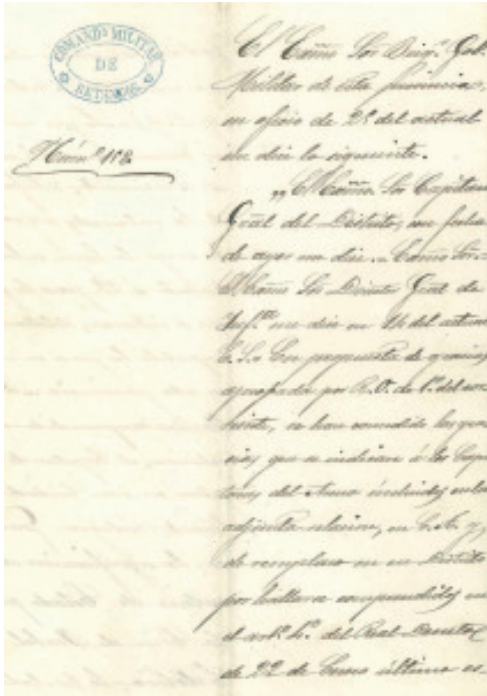 COMANDª MILITAR
DE
Númº 158
El Excmo Sor Brigr Gobr
Militar de esta provincia,
en oficio de 2º del actual
me dice lo siguiente.
„ El Excmo. Sor Capitan
Gral del Distrito, con fecha
de ayer me dice.. Excmo Sor..
El Excmo Sor Director Gral de
Infª me dice en 14 del actual
E. S.. En propuesta de gracias
aprobada por R. O. de 1º del cor
riente, se han concedido las gra
cias que se indican á los Capi
tanes del Arma incluidos en la
adjunta relacion, en S. A. y,
de remplazo en ese Distrito
por hallarse comprendidos en
el artº 4º del Real Decreto
de 22 de Enero último es